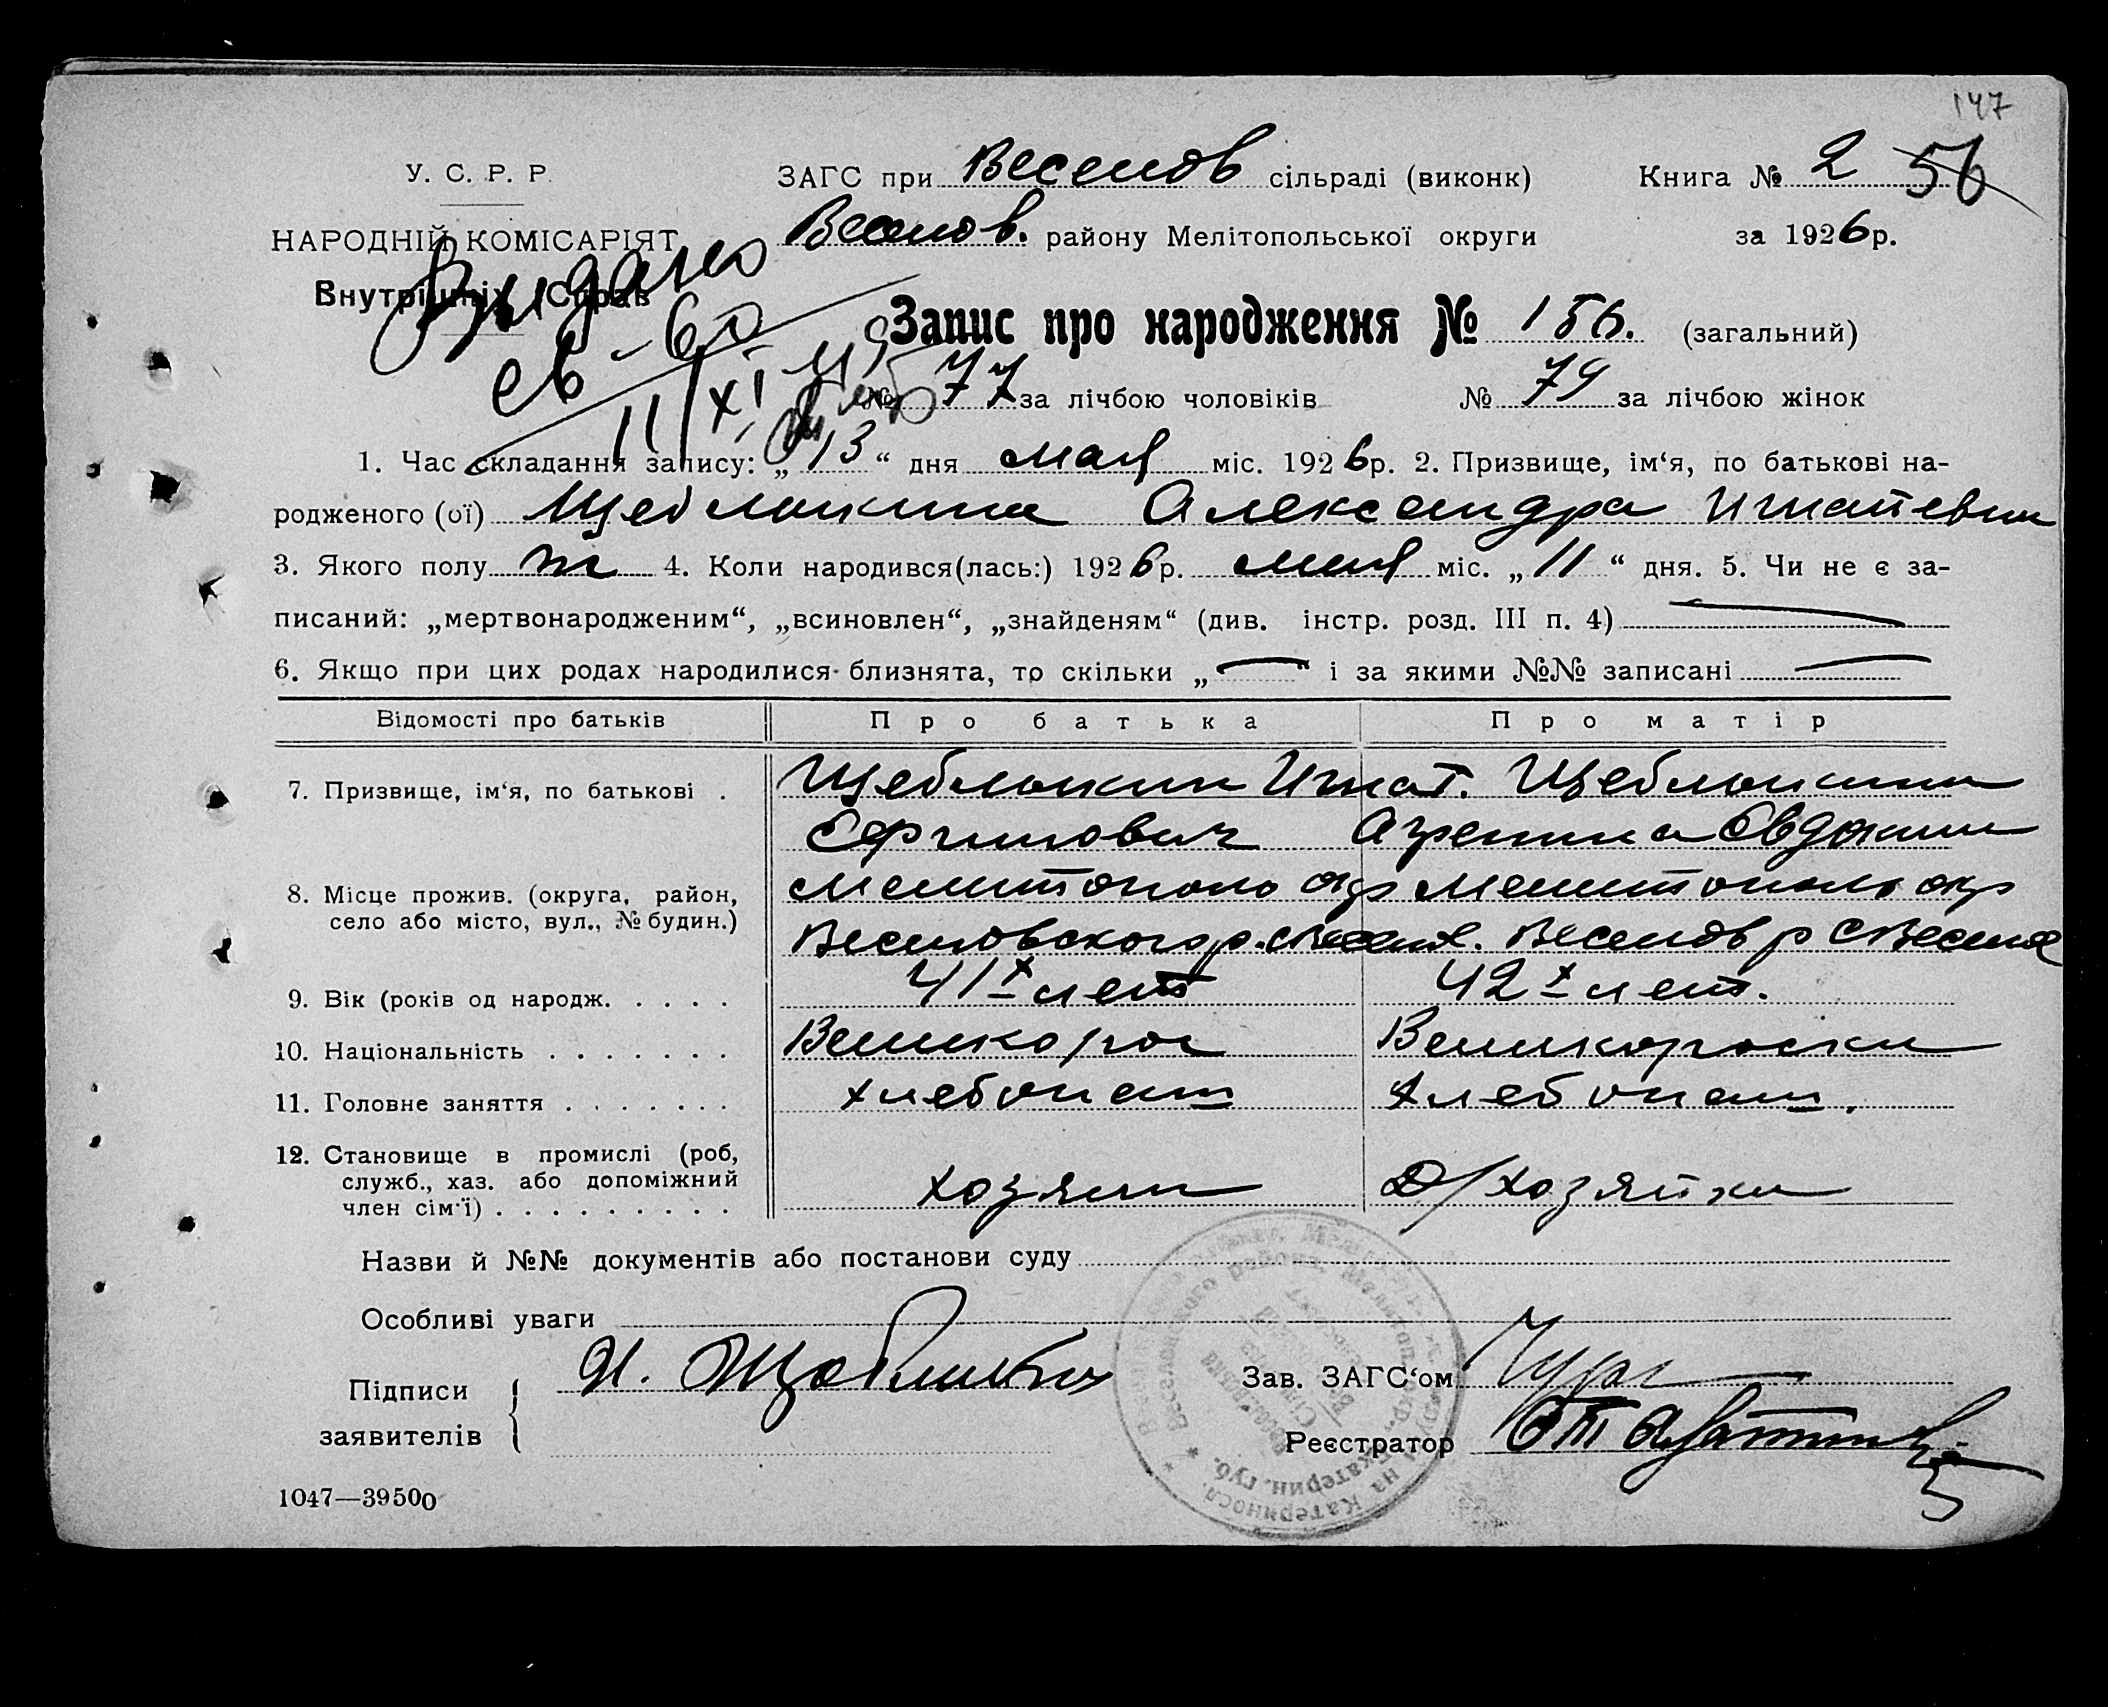 147
У. С. Р. Р.
ЗАГС при Веселов сільраді (виконк) Книга № 2 56
НАРОДНІЙ КОМІСАРІЯТ Веселов. району Мелітопольської округи за 1926р.
Внутрішніх Справ
Выдано
св-60
11/XI
Запис про народження № 156. (загальний)
№ 77 за лічбою чоловіків № 79 за лічбою жінок
1. Час складання запису: „13“ дня мая міс. 1926р. 2. Призвище, ім‘я, по батькові на-
родженого (ої) Щеблыкина Александра Игнатевна
3. Якого полу ж 4. Коли народився(лась:) 1926р. мая міс. „11“ дня. 5. Чи не є за-
писаний: „мертвонародженим“, „всиновлен“, „знайденям“ (див. інстр. розд. III п. 4)
6. Якщо при цих родах народилися близнята, то скільки „ “ і за якими №№ записані
Відомості про батьків Про батька Про матір
7. Призвище, ім‘я, по батькові . Щеблыкин Игнат. Щеблыкина
Евдоким
8. Місце прожив. (округа, район, Мелитополь окр Мелитополь окр
село або місто, вул., № будин.) Веселовского р. с Весел. Веселов р с Весело
9. Вік (років од народж. . . . . 41х лет 42х лет.
10. Національність . . . . . . . Великорос Великороска
11. Головне заняття . . . . . . . хлебопаш хлебопаш.
12. Становище в промислі (роб,
служб., хаз. або допоміжний хозяин Д/хозяйка
член сім‘ї) . . . . . . . . .
Назви й №№ документів або постанови суду
Особливі уваги
Підписи
заявителів
И. Щеблыкин
Зав. ЗАГС‘ом
Реєстратор
1047—39500